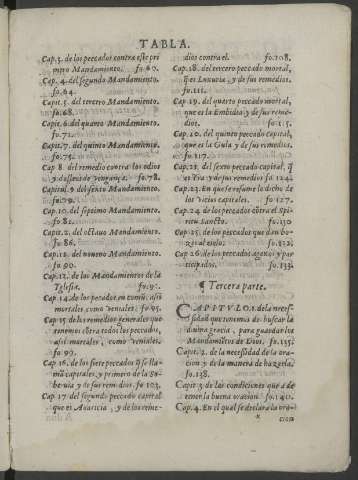 TABLA.
Cap. 3. de los peccados contra este pri
mero Mandamiento. fo. 60.
Cap. 4. del segundo Mandamiento.
fo. 64.
Capit. 5. del tercero Mandamiento.
fo. 68.
Capit. 6. del quarto Mandamiento.
fo. 72.
Capit. 7. del quinto Mandamiento.
fo. 75.
Cap 8. del remedio contra los odios
y desseo de vengança. fo. 78.
Capitul. 9 del sexto Mandamiento.
fo. 79.
Cap. 10. del septimo Mandamiento.
fo. 82.
Capit. 2. del octauo Mandamiento.
fo. 86.
Capit. 12. del noueno Mandamiento
fo. 90.
Cap. 12. de los Mandamientos de la
Iglesia. fo. 91.
Cap. 14. de los pecados en comũ, assi
mortales como veniales. fo. 95.
Cap. 15. de los remedios generales que
tenemos cõtra todos los peccados,
assi mortales, como veniales.
fo. 99.
Cap. 16. de los siete peccados q̃ se lla-
mã capitales, y primero de la So-
beruia y de sus remedios. fo. 103.
Cap. 17 del segundo peccado capital
que es Auaricia, y de los reme-
dios contra el. fo. 108.
Cap. 18. del tercero peccado mortal,
q̃ es Luxuria, y de sus remedios.
fo. 111.
Cap. 19. del quarto peccado mortal,
que es la Embidia y de sus reme-
dios. fo. 115.
Cap. 20. del quinto peccado capital,
que es la Gula y de sus remedios.
fo. 117.
Cap. 22. del sexto peccado capital, q̃
es Yra y de sus remedios fo 124.
Cap. 23. En que se resume lo dicho de
los vicios capitales. fo 127.
Cap. 24. de los peccados cõtra el Spi-
ritu sancto. fo. 130
Cap. 25. de los pecados que dan bo-
zes al cielo. fo. 132.
Cap 26. de los peccados agenos y par
ticipado. fo. 133.
¶ Tercera parte.
CAPITVLO 1. de la neces
sidad que tenemos de buscar la
diuina gracia, para guardar los
Mandamiẽtos de Dios. fo. 135.
Capit. 2. de la necessidad de la ora-
cion y de la manera de hazerla.
fo. 138.
Capit 3 de las condiciones que a de
tener la buena oracion. fo. 140.
Cap. 4. En el qual se declara la ora-
cion